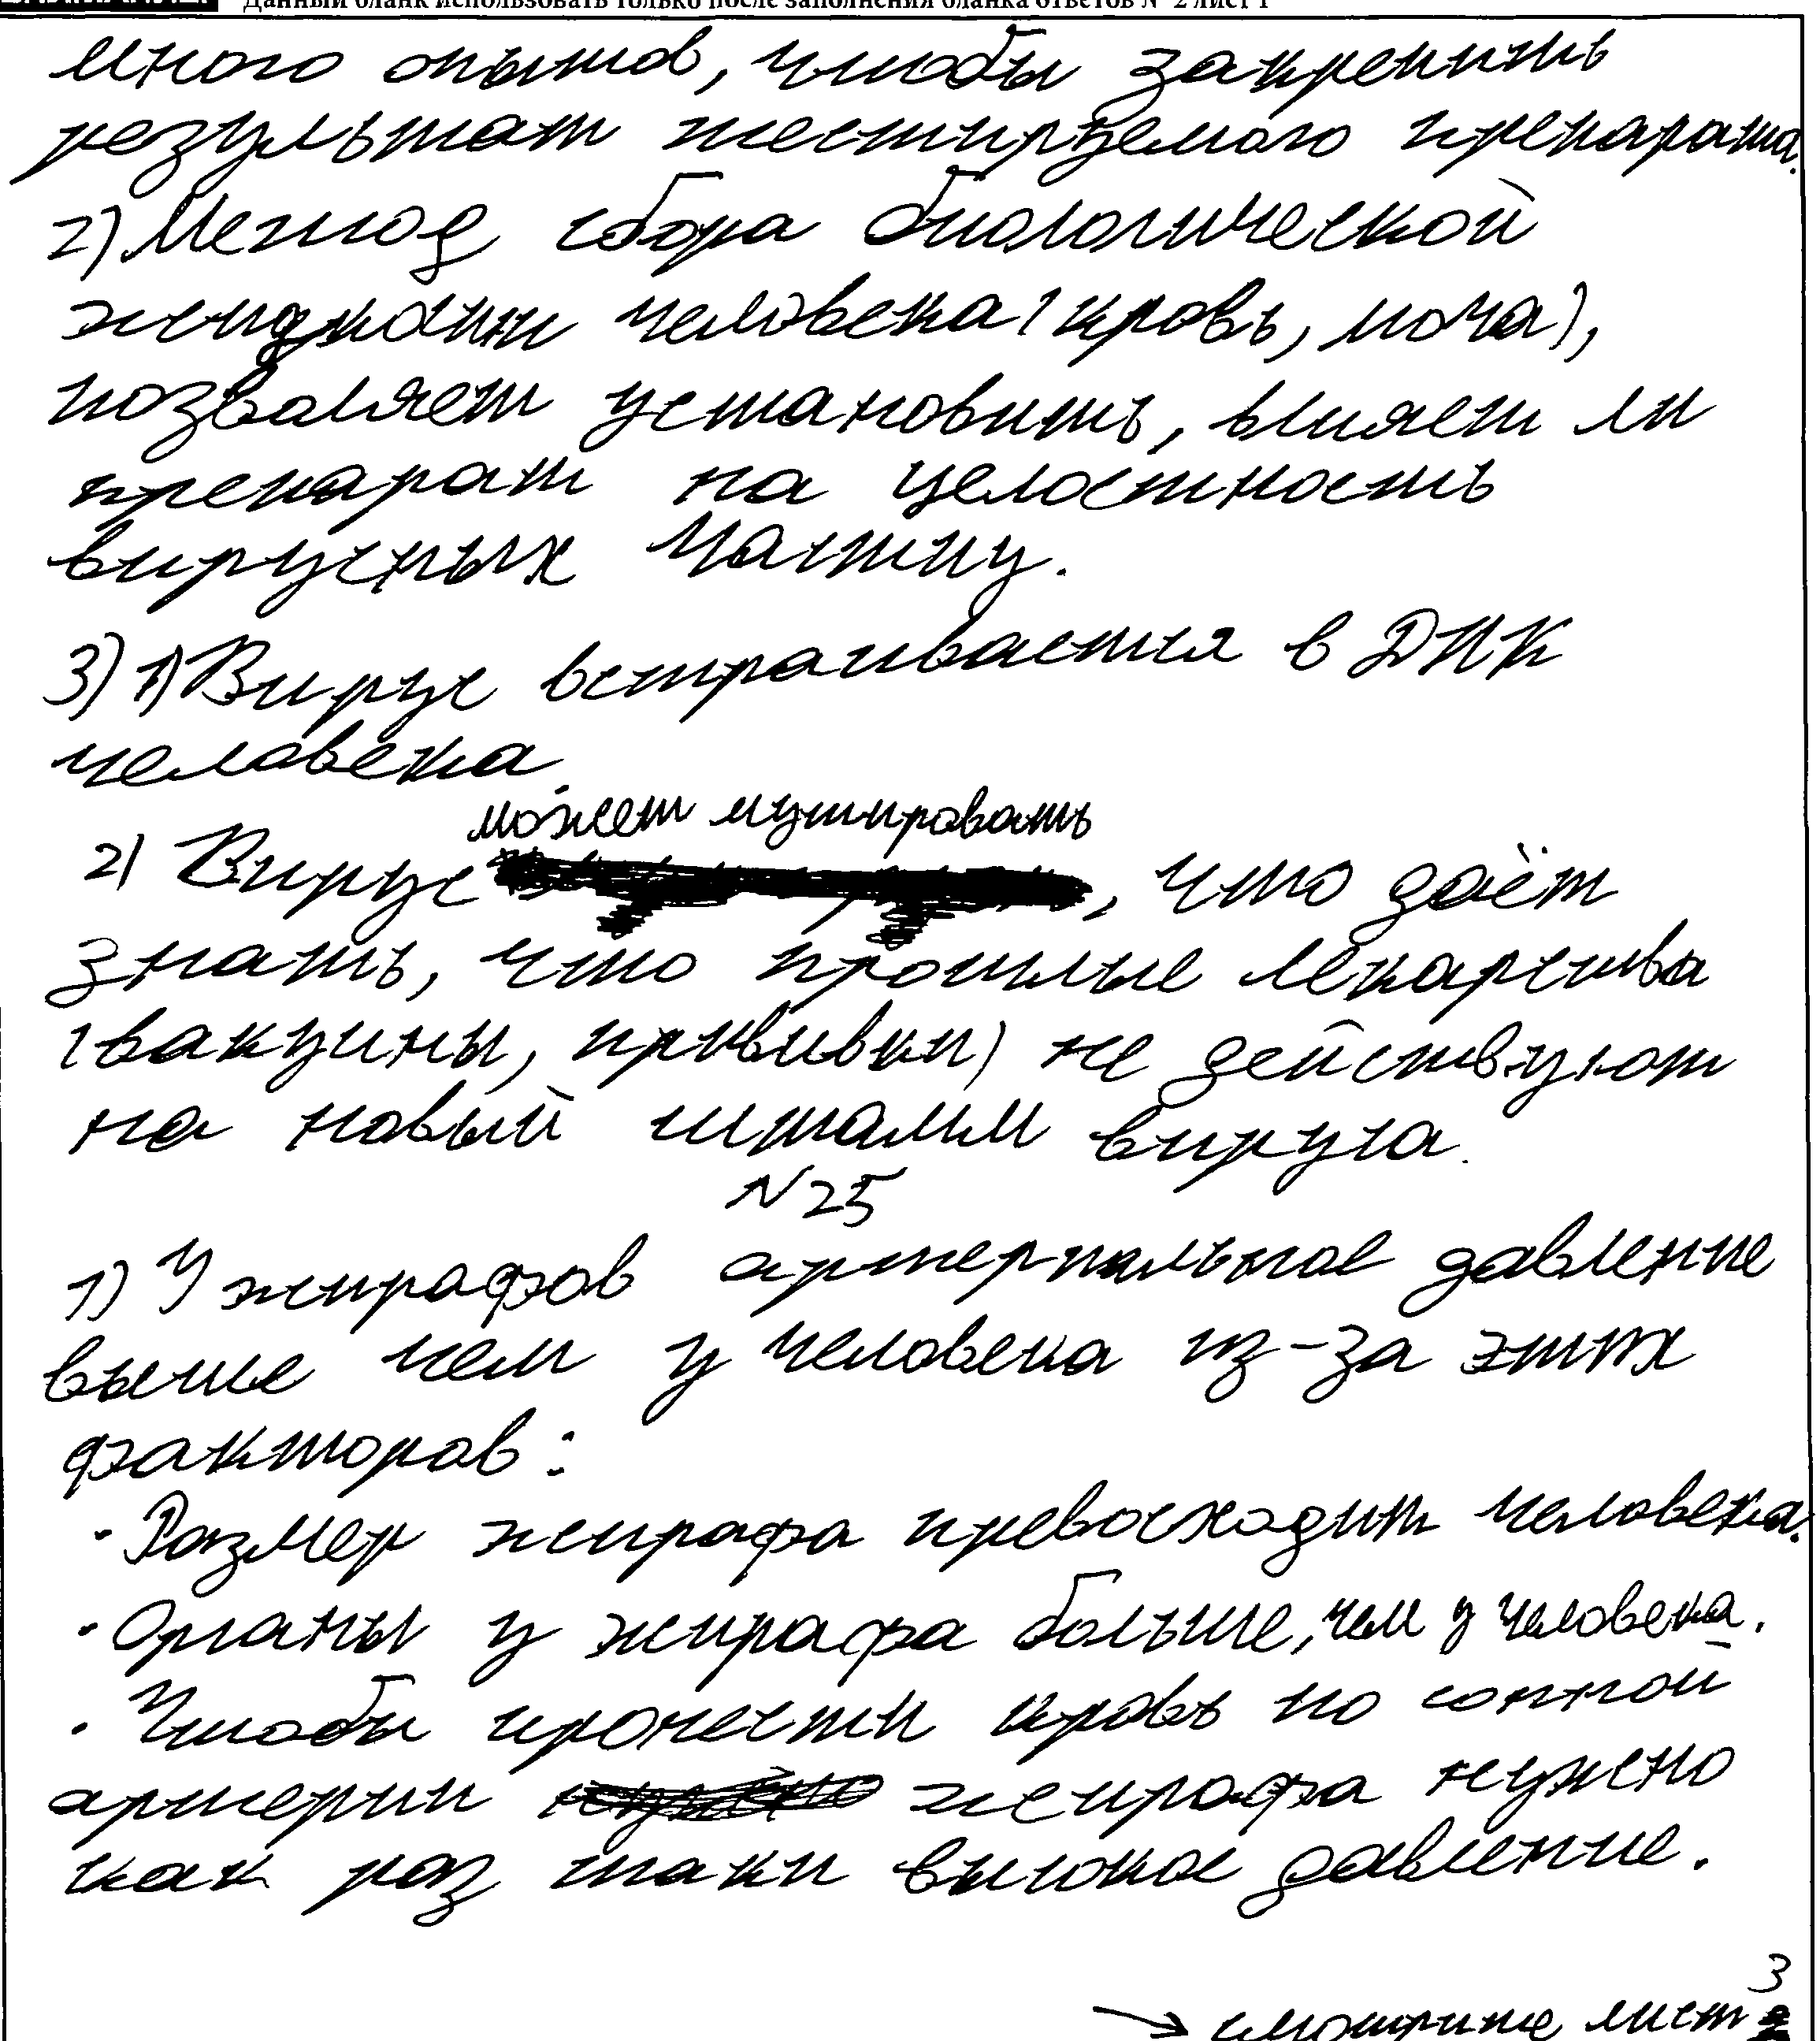 Данный бланк использовать только после заполнения бланка ответов № 2 лист 1
много опытов, чтобы закрепить
результат тестируемого препарата.
2) Метод сбора биологической
жидкости человека (кровь, моча),
позволяет установить, влияет ли
препарат на целостность
вирусных частиц.
3) 1) Вирус встраивается в ДНК
человека.
может мутировать
2) Вирус , что даёт
знать, что прошлые лекарства
(вакцины, прививки) не действуют
на новый штамм вируса.
N25
1) У жирафов артериальное давление
выше чем у человека из-за этих
факторов:
· Размер жирафа превосходит человека.
· Органы у жирафа больше, чем у человека.
· Чтобы пронести кровь по сонной
артерии жирафа нужно
как раз таки высокое давление.
3
→ смотрите лист